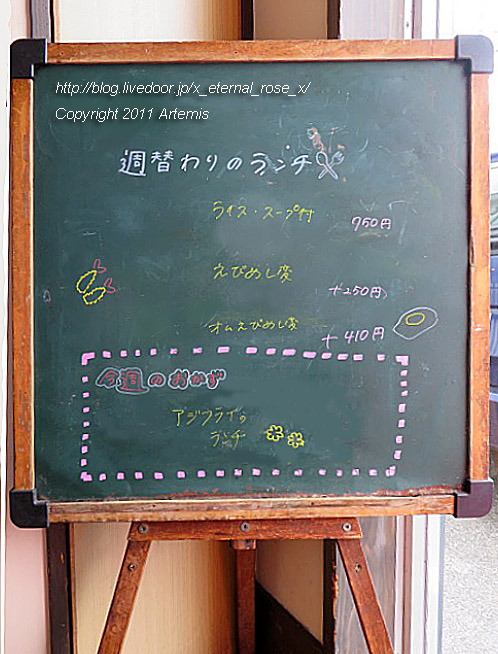 http://blog.livedoor.jp/x_eternal_rose_x/
Copyright 2011 Artemis
週替わりのランチ
ライス・スープ付 950円
えびめし変 +250円
オムえびめし変 +410円
今週のおかず
アジフライの
ランチ